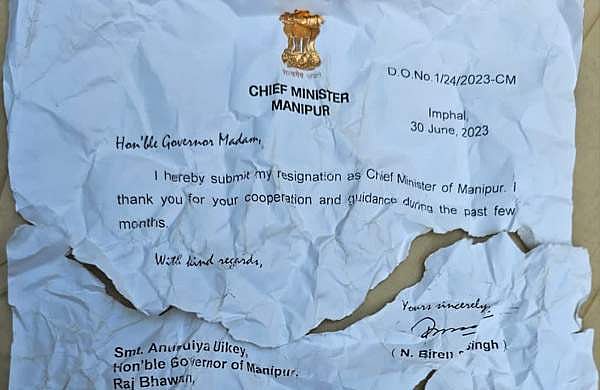 सत्यमेव जयते
CHIEF MINISTER
MANIPUR
D.O.No.1/24/2023-CM
Imphal,
30 June, 2023
Hon'ble Governor Madam,
I hereby submit my resignation as Chief Minister of Manipur. I
thank you for your cooperation and guidance during the past few
months.
With kind regards,
Yours sincerely,
( N. Biren Singh )
Smt. Anusuiya Uikey,
Hon'ble Governor of Manipur.
Raj Bhawan,